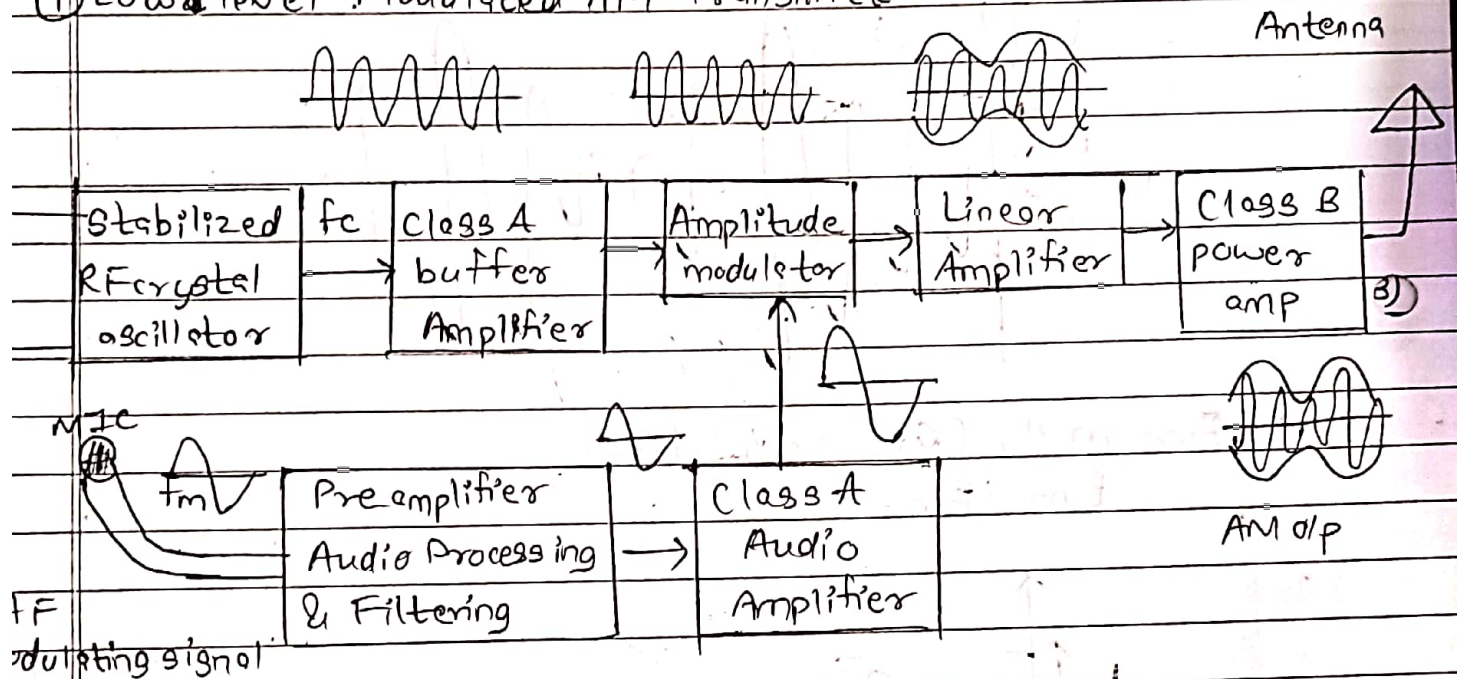 Antenna
Stabilized
RF crystal
oscillator
fc
Class A
buffer
Amplifier
Amplitude
modulator
Linear
Amplifier
Class B
power
amp
B)
MIC
fm
Preamplifier
Audio Processing
& Filtering
Class A
Audio
Amplifier
AM o/p
signal